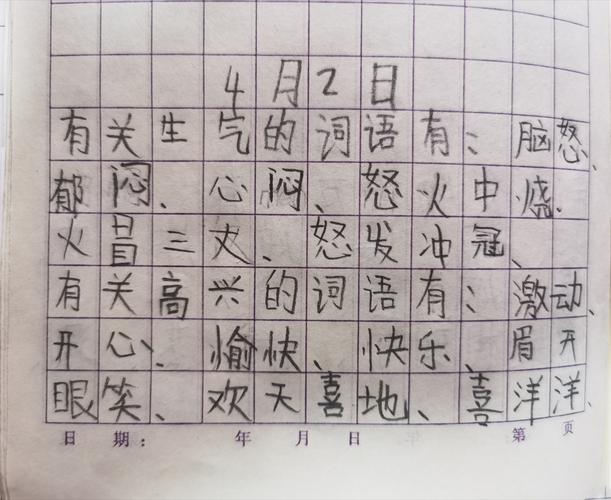 4月2日
有关生气的词语有：脑怒、
郁闷、心闷、怒火中烧、
火冒三丈、怒发冲冠、
有关高兴的词语有：激动、
开心、愉快、快乐、眉开
眼笑、欢天喜地、喜洋洋、
日 期： 年 月 日 第 页